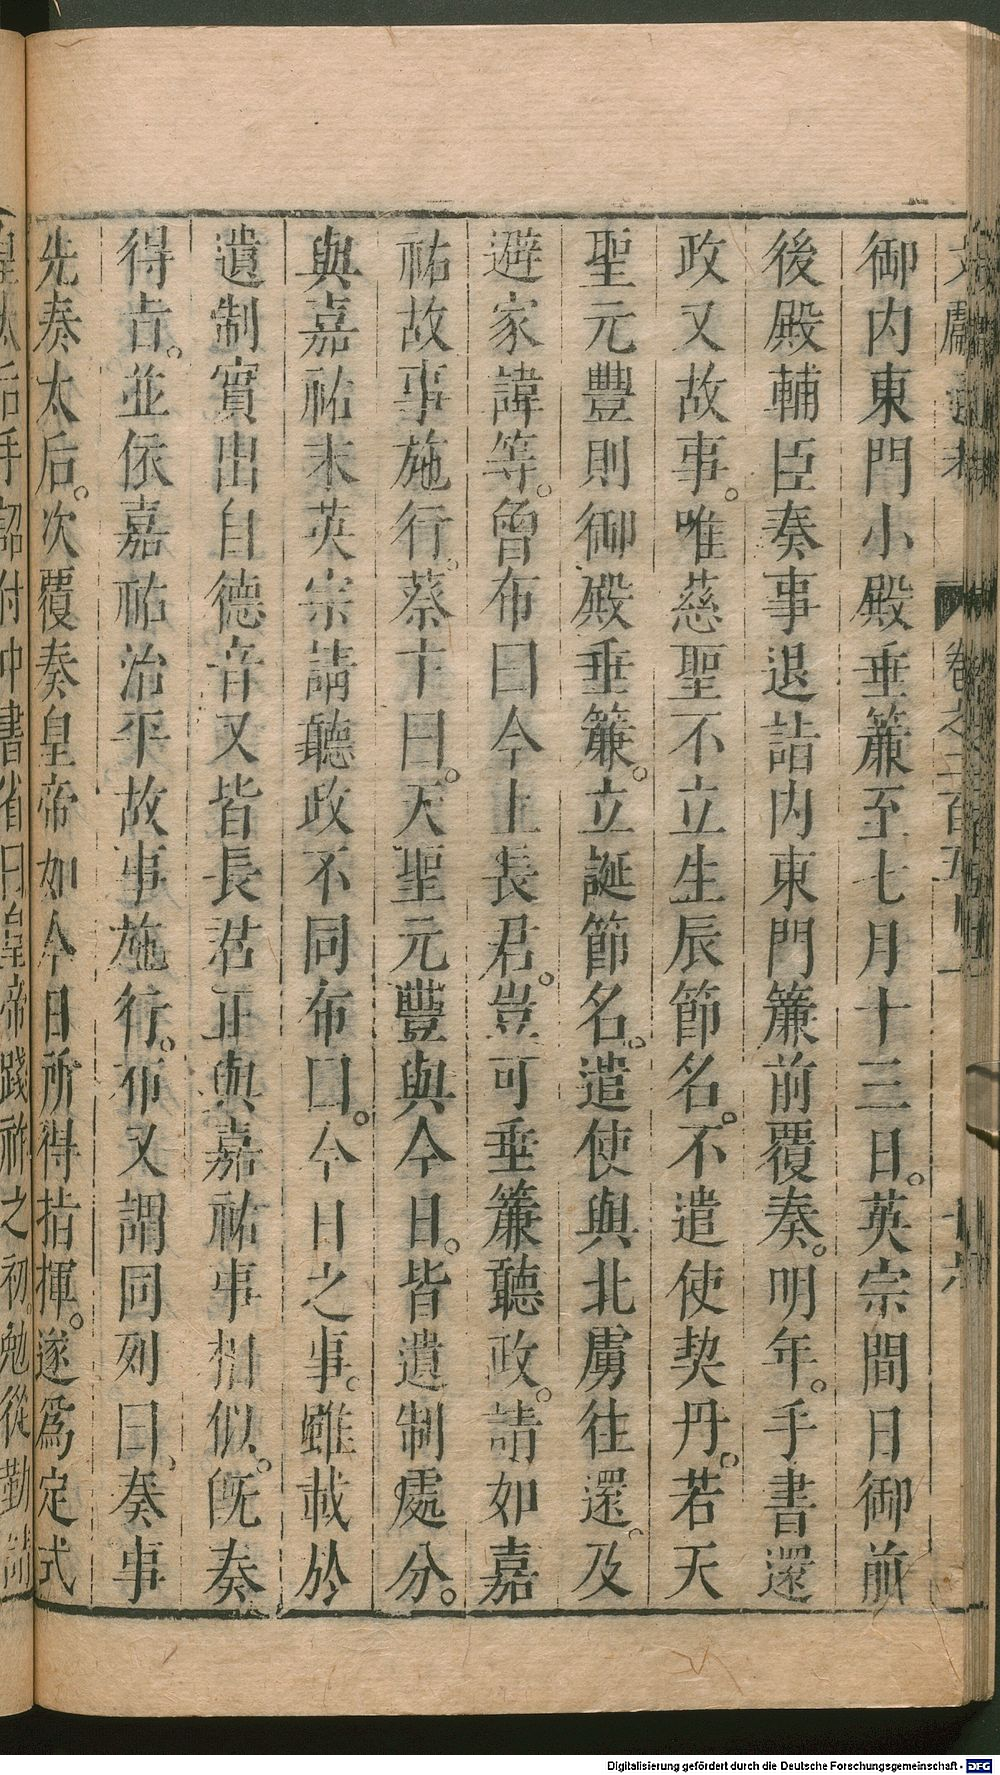 御内東門小殿垂簾至七月十三日。英宗間日御前
後殿輔臣奏事退詣内東門簾前覆奏。明年。手書還
政又故事。唯慈聖不立生辰節名。不遣使契丹。若天
聖元豐則御殿垂簾。立誕節名。遣使與北虜往還。及
避家諱等。曾布曰今上長君。豈可垂簾聽政。請如嘉
祐故事施行。蔡卞曰。天聖元豐與今日。皆遺制處分。
與嘉祐末英宗請聽政不同布曰。今日之事。雖載於
遺制實出自德音又皆長君正與嘉祐事相似。旣奏
得旨。並依嘉祐治平故事施行。布又謂同列曰、奏事
先奏太后。次覆奏皇帝如今日所得指揮。遂爲定式
皇太后手詔付中書省曰皇帝踐祚之初。勉從勤請
卷之二百五
Digitalisierung gefördert durch die Deutsche Forschungsgemeinschaft - DFG